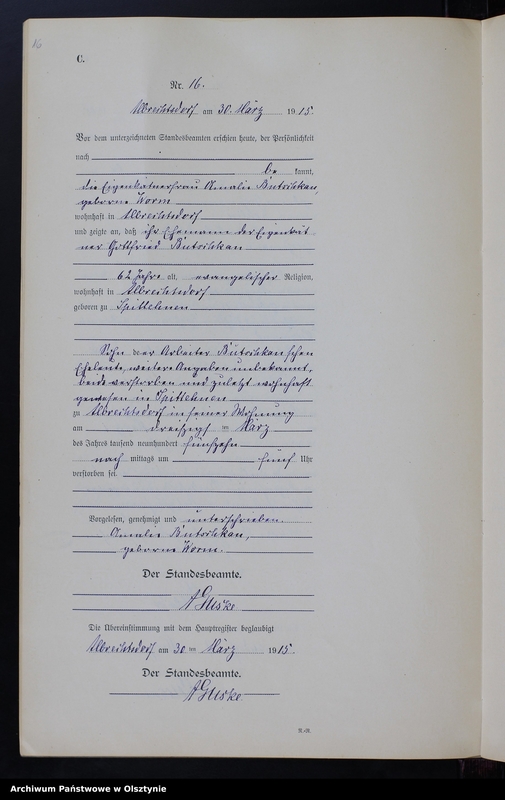 16
C.
Nr. 16.
Albrechtsdorf am 30. März 1915.
Vor dem unterzeichneten Standesbeamten erschien heute, der Persönlichkeit
nach
be kannt,
die Eigenkätnerfrau Amalie Butschkau,
geborne Worm
wohnhaft in Albrechtsdorf
und zeigte an, daß ihr Ehemann der Eigenkät
ner Gottfried Butschkau
62 Jahre alt, evangelischer Religion,
wohnhaft in Albrechtsdorf
geboren zu Spittehnen
Sohn der Arbeiter Butschkau'schen
Eheleute, weitere Angaben unbekannt,
beide verstorben und zuletzt wohnhaft
gewesen in Spittehnen
zu Albrechtsdorf in seiner Wohnung
am dreißigst im März
des Jahres tausend neunhundert fünfzehn
nach mittags um fünf Uhr
verstorben sei.
Vorgelesen, genehmigt und unterschrieben.
Amalie Butschkau,
geborne Worm.
Der Standesbeamte.
Die Übereinstimmung mit dem Hauptregister beglaubigt
Albrechtsdorf am 30 ten März 1915.
Der Standesbeamte.
Archiwum Państwowe w Olsztynie